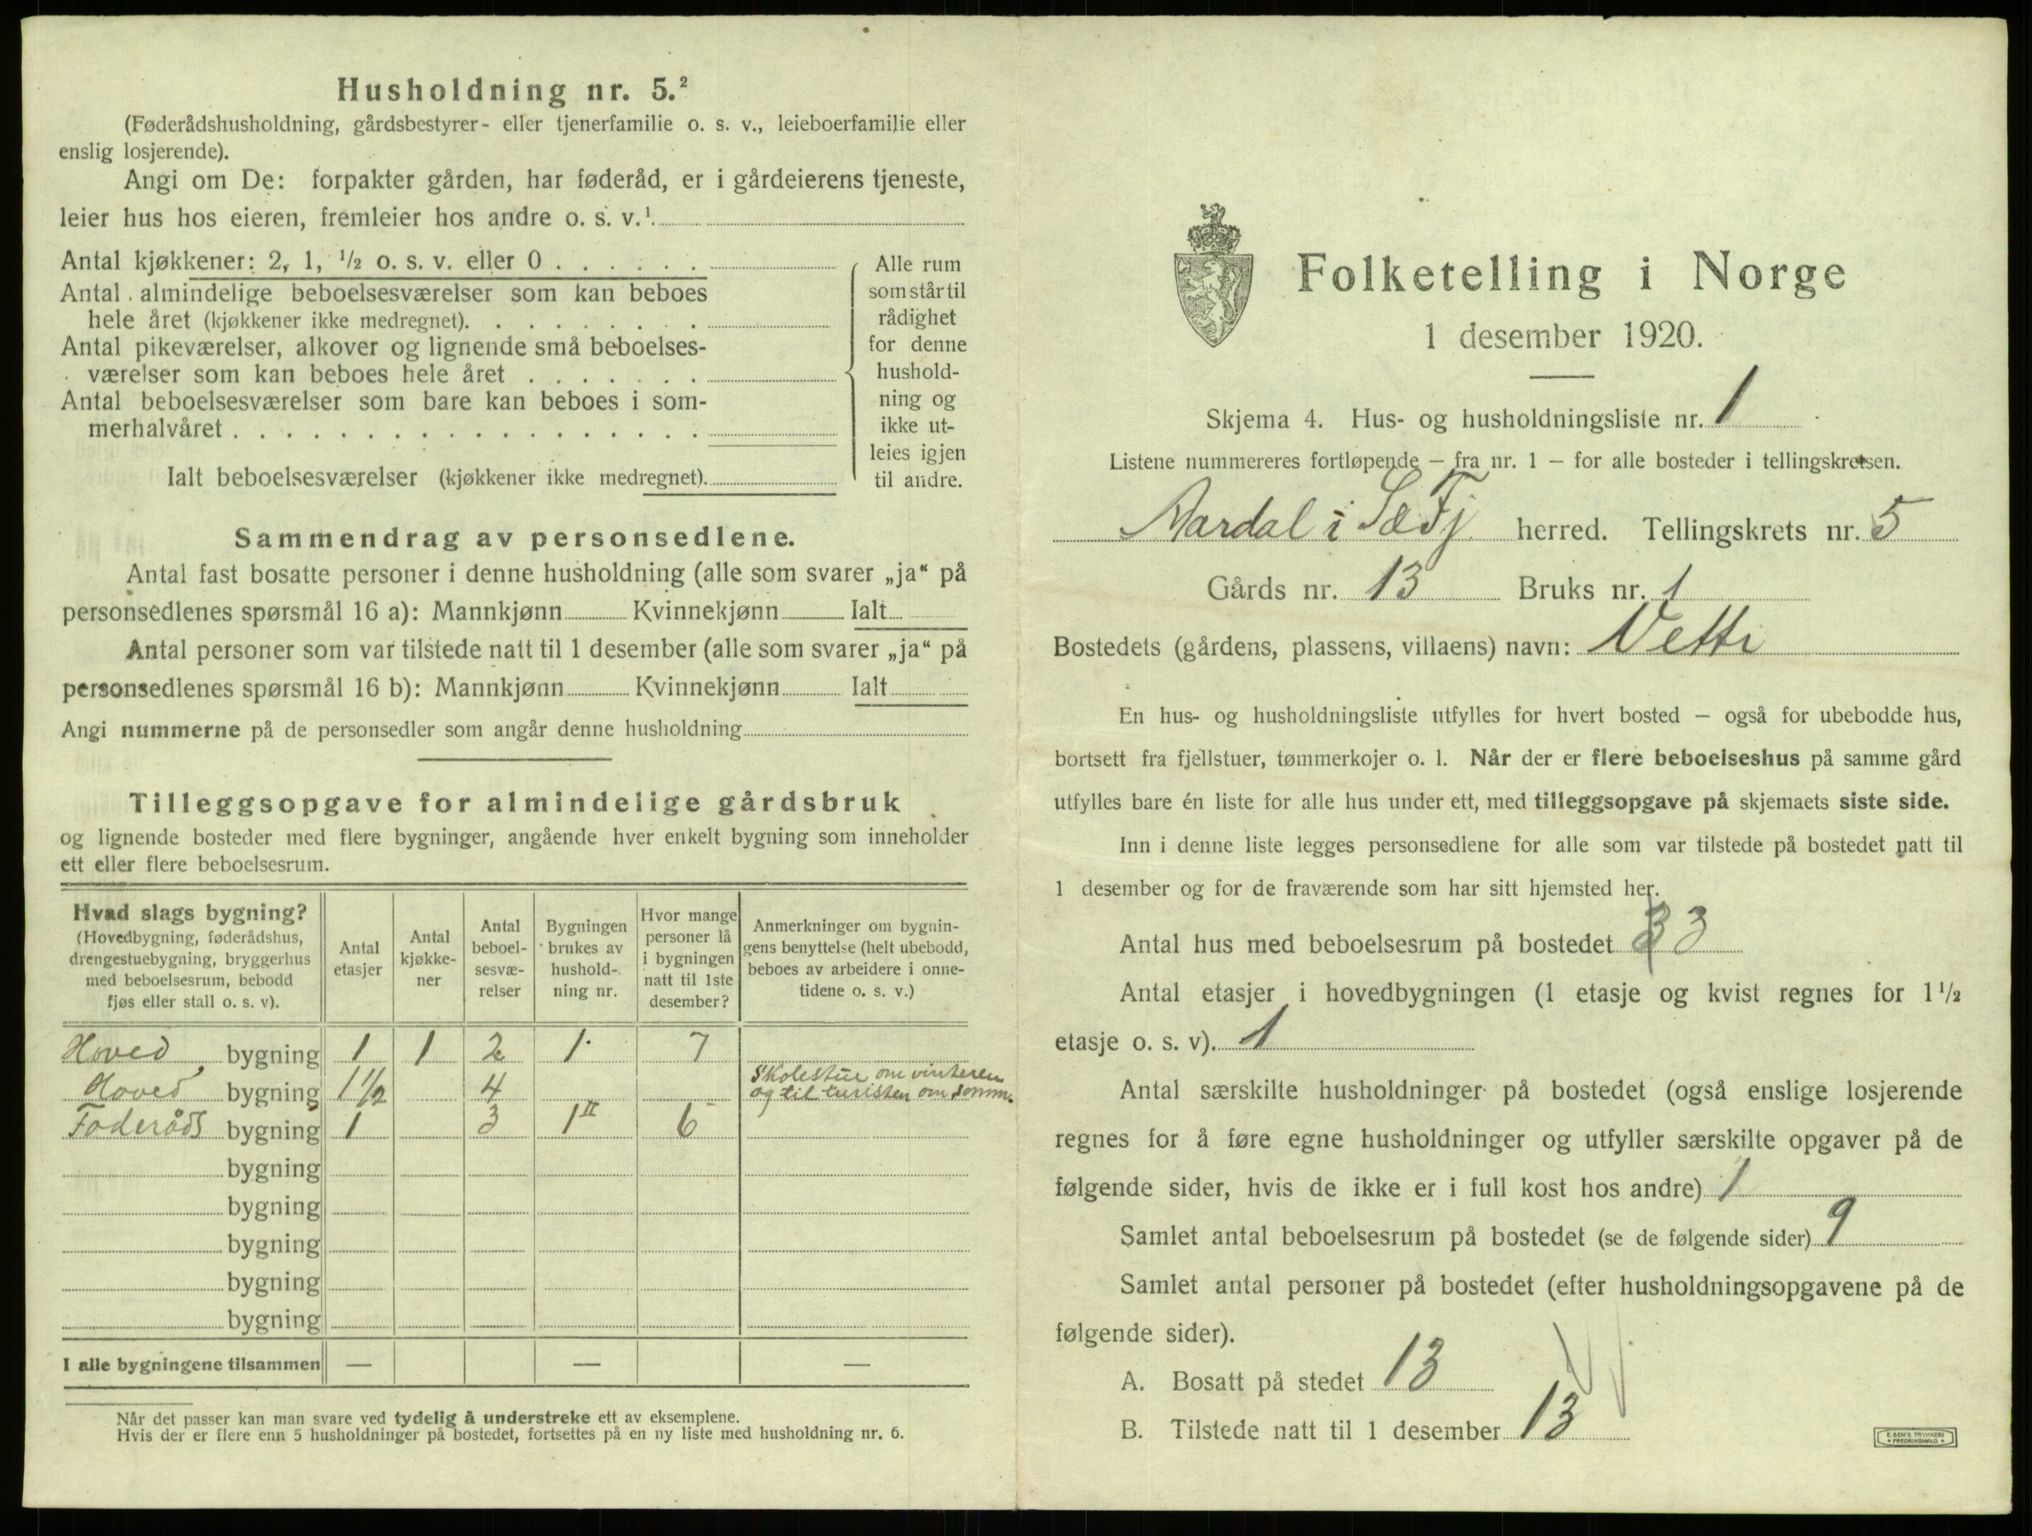 Husholdning nr. 5.²
(Føderådshusholdning, gårdsbestyrer- eller tjenerfamilie o. s. v., leieboerfamilie eller
enslig losjerende).
Angi om De: forpakter gården, har føderåd, er i gårdeierens tjeneste,
leier hus hos eieren, fremleier hos andre o. s. v.¹
Antal kjøkkener: 2, 1, ½ o. s. v. eller 0
Antal almindelige beboelsesværelser som kan beboes
hele året (kjøkkener ikke medregnet).
Antal pikeværelser, alkover og lignende små beboelses-
værelser som kan beboes hele året
Antal beboelsesværelser som bare kan beboes i som-
merhalvåret
Ialt beboelsesværelser (kjøkkener ikke medregnet).
Alle rum
som står til
rådighet
for denne
hushold-
ning og
ikke ut-
leies igjen
til andre.
Sammendrag av personsedlene.
Antal fast bosatte personer i denne husholdning (alle som svarer „ja“ på
personsedlenes spørsmål 16 a): Mannkjønn Kvinnekjønn Ialt
Antal personer som var tilstede natt til 1 desember (alle som svarer „ja“ på
personsedlenes spørsmål 16 b): Mannkjønn Kvinnekjønn Ialt
Angi nummerne på de personsedler som angår denne husholdning
Tilleggsopgave for almindelige gårdsbruk
og lignende bosteder med flere bygninger, angående hver enkelt bygning som inneholder
ett eller flere beboelsesrum.
Hvad slags bygning?
(Hovedbygning, føderådshus,
drengestuebygning, bryggerhus
med beboelsesrum, bebodd
fjøs eller stall o. s. v).
Antal
etasjer
Antal
kjøkke-
ner
Antal
beboel-
sesvæ-
relser
Bygningen
brukes av
hushold-
ning nr.
Hvor mange
personer lå
i bygningen
natt til 1ste
desember?
Anmerkninger om bygnin-
gens benyttelse (helt ubebodd,
beboes av arbeidere i onne-
tidene o. s. v.)
Hoved bygning 1 1 2 1. 7
Hoved bygning 1½ 4 Skolestue om vinteren
og til turisten om somm.
Føderåds bygning 1 3 1 II 6
bygning
bygning
bygning
bygning
bygning
I alle bygningene tilsammen — — —
Når det passer kan man svare ved tydelig å understreke ett av eksemplene.
Hvis der er flere enn 5 husholdninger på bostedet, fortsettes på en ny liste med husholdning nr. 6.
Folketelling i Norge
1 desember 1920.
Skjema 4. Hus- og husholdningsliste nr. 1
Listene nummereres fortløpende – fra nr. 1 – for alle bosteder i tellingskretsen.
Aardal i S & Fj herred. Tellingskrets nr. 5
Gårds nr. 13 Bruks nr. 1
Bostedets (gårdens, plassens, villaens) navn: Vetti
En hus- og husholdningsliste utfylles for hvert bosted – også for ubebodde hus,
bortsett fra fjellstuer, tømmerkojer o. l. Når der er flere beboelseshus på samme gård
utfylles bare én liste for alle hus under ett, med tilleggsopgave på skjemaets siste side.
Inn i denne liste legges personsedlene for alle som var tilstede på bostedet natt til
1 desember og for de fraværende som har sitt hjemsted her.
Antal hus med beboelsesrum på bostedet 3
Antal etasjer i hovedbygningen (1 etasje og kvist regnes for 1½
etasje o. s. v). 1
Antal særskilte husholdninger på bostedet (også enslige losjerende
regnes for å føre egne husholdninger og utfyller særskilte opgaver på de
følgende sider, hvis de ikke er i full kost hos andre) 1
Samlet antal beboelsesrum på bostedet (se de følgende sider) 9
Samlet antal personer på bostedet (efter husholdningsopgavene på de
følgende sider).
A. Bosatt på stedet 13
B. Tilstede natt til 1 desember 13